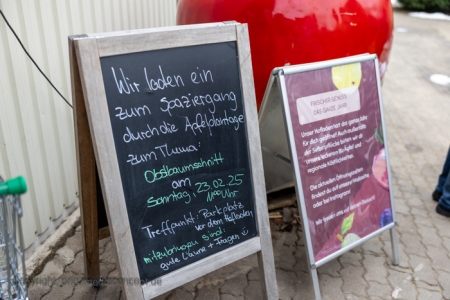 Wir laden ein
zum Spaziergang
durch die Apfelplantage
zum Thema:
Obstbaumschnitt
am
Sonntag, 23.02.25
11:00 Uhr
Treffpunkt: Parkplatz
vor dem Hofladen
mitzubringen sind:
gute Laune + Fragen
FRISCHER GENUSS
DAS GANZE JAHR
Unser Hofladen hat das ganze Jahr
für dich geöffnet! Auch außerhalb
der Selbstpflücke bieten wir dir
unsere leckeren Äpfel und
regionale Köstlichkeiten.
Die aktuellen Öffnungszeiten
findest du auf unserer Website
oder bei Instagram
Wir freuen uns auf deinen Besuch!